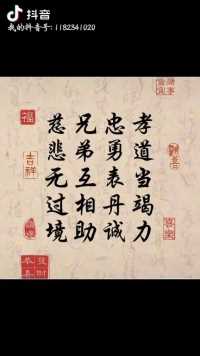 抖音
我的抖音号: 1182341020
孝道当竭力
忠勇表丹诚
兄弟互相助
慈悲无过境
福
吉祥